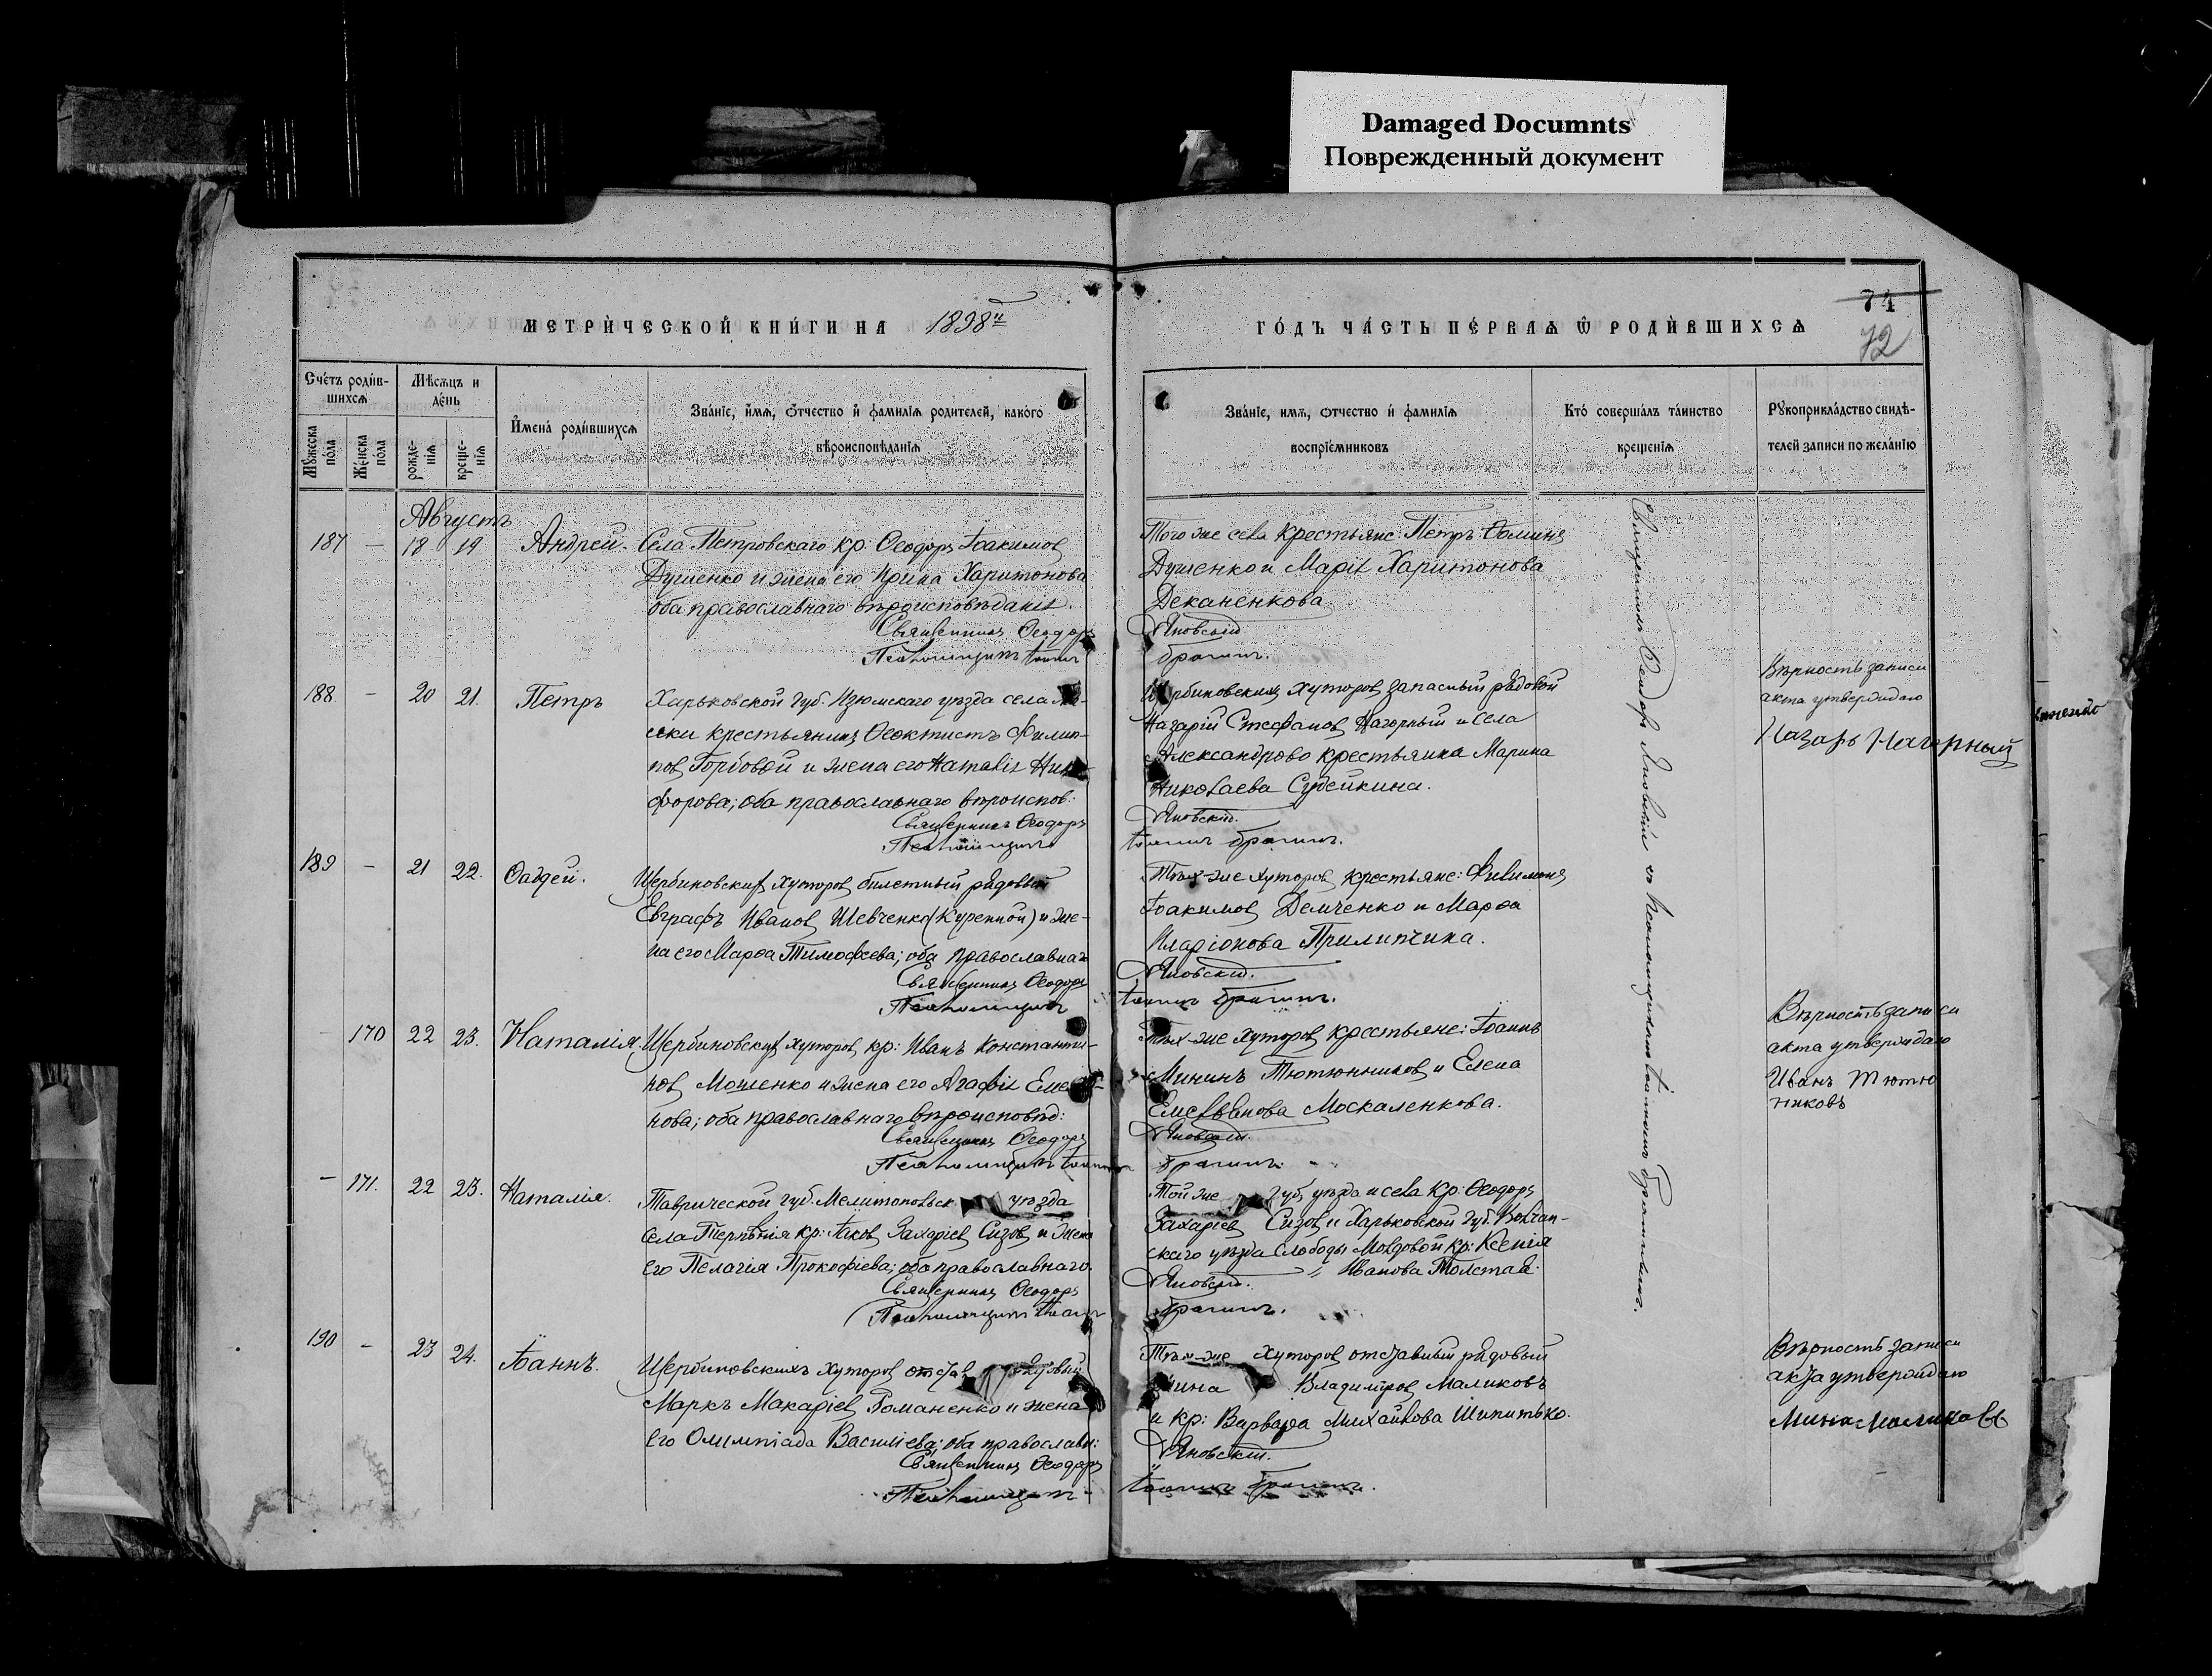 Damaged Documnts
Поврежденный документ
74
72
МЕТРИ́ЧЕСКОЙ КНИ́ГИ НА 1898й
ГО́ДЪ ЧА́СТЬ ПЕ́РВАѦ Ѿ РОДИ́ВШИХСѦ
Сче́тъ роди́в-
шихсѧ
Мѣ́сѧцъ и
де́нь
Мꙋ́жеска
по́ла
Же́нска
по́ла
рожде-
нїѧ
креще-
нїѧ
И҆мена̀ роди́вшихсѧ
Зва́нїе, и҆́мѧ, ѻ҆́тчество и҆ фамилїѧ родителей, како́го
вѣроисповѣ́данїѧ
Зва́нїе, имѧ, ѻтчество и҆ фамилїѧ
воспрїе́мниковъ
Кто̀ соверша́лъ та́инство
креще́нїѧ
Рꙋкоприкла́дство свидѣ́-
телей записи по жела́нїю
Августъ
187 — 18 19 Андрей. Села Петровскаго кр: Ѳеодоръ Іоакимовъ
Душенко и жена его Ирина Харитонова
оба православнаго вѣроисповѣданія.
Священникъ Ѳеодоръ
Псаломщикъ Іоаннъ
Того же села крестьяне: Петръ Ѳоминъ
Душенко и Марія Харитонова
Деканенкова
Яновскій
Брагинъ.
188 — 20 21. Петръ Харьковской губ. Изюмскаго уѣзда села
крестьянинъ Ѳеоктистъ Филип-
повъ Горбовой и жена его Наталія Ник
форова; оба православнаго вѣроиспов:
Священникъ Ѳеодоръ
Псаломщикъ
Щербиновскихъ хуторовъ запасный рядовой
Назарій Стефановъ Нагорный и села
Александрово крестьянка Марина
Николаева Судейкина.
Яновскій.
Іоаннъ Брагинъ.
Вѣрность записи
акта утверждаю
Назаръ Нагорный
189 — 21 22. Ѳаддей. Щербиновскихъ хуторовъ билетный рядовый
Евграфъ Ивановъ Шевченко (Куренной) и же-
на его Марѳа Тимофеева; оба православнаго
Священникъ Ѳеодоръ
Псаломщикъ
Тѣхъ-же хуторовъ крестьяне: Филимонъ
Іоакимовъ Демченко и Марѳа
Иларіонова Прилипчина.
Яновскій.
Іоаннъ Брагинъ.
— 170 22 23. Наталія. Щербиновскихъ хуторовъ кр: Иванъ Константи-
новъ Мошенко и жена его Агафія Емель
нова; оба православнаго вѣроисповѣд:
Священникъ Ѳеодоръ
Псаломщикъ Іоаннъ
Тѣхъ-же хуторовъ крестьяне: Іоаннъ
Мининъ Тютюнниковъ и Елена
Емельянова Москаленкова.
Яновскій.
Брагинъ.
Вѣрность записи
акта утверждаю
Иванъ Тютю
никовъ
— 171. 22 23. Наталія. Таврической губ. Мелитопольск. уѣзда
Села Терпѣнія кр: Іаковъ Захаріевъ Сизовъ и жена
его Пелагія Прокофіева; оба православнаго.
Священникъ Ѳеодоръ
Псаломщикъ Іоаннъ
Той же губ. уѣзда и села кр: Ѳеодоръ
Захаріевъ Сизовъ и Харьковской губ. Волчан-
скаго уѣзда слободы Молдовой кр: Ксенія
Иванова Толстая.
Яновскій.
Брагинъ.
190 — 23 24. Іоаннъ. Щербиновскихъ хуторовъ отстав рядовый
Маркъ Макаріевъ Романенко и жена
его Олимпіада Васильева; оба православн:
Священникъ Ѳеодоръ
Псаломщикъ
Тѣхъ-же хуторовъ отставный рядовый
Мина Владиміровъ Маликовъ
и кр: Варвара Михайлова Шипитько.
Яновскій.
Іоаннъ Брагинъ.
Вѣрность записи
акта утверждаю
Мина Маликовъ
Священникъ Ѳеодоръ Яновскій съ псаломщикомъ Іоанномъ Брагинымъ.